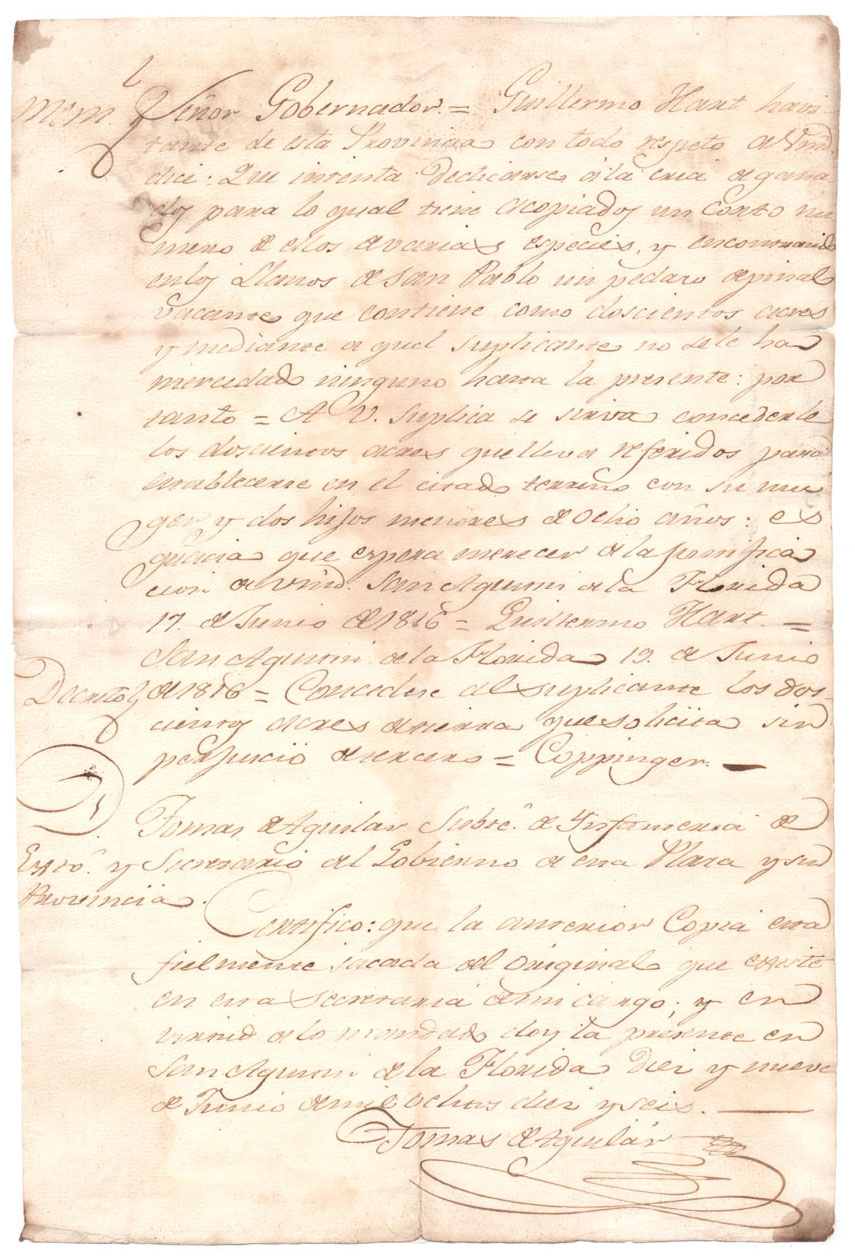 Mem.l Señor Gobernador = Guillermo Hart havi
tante de esta Provincia con todo respeto a Vmd.
dice: Que intenta dedicarse á la cria de gana
dos para lo qual tiene acopiados un corto nu
mero de ellos de varias especies, y encontrando
en los Llanos de San Pablo un pedazo de pinal
vacante que contiene como doscientos acres
y mediante a quel suplicante no se le ha
mercedado ninguno hasta la presente: por
tanto = A V. Suplica se sirva concederle
los doscientos acres que lleva referidos para
establecerse en el citado terreno con su mu
ger y dos hijos menores de ocho años: es
gracia que espera merecer de la justifica
cion de Vmd. San Agustin de la Florida
17. de Junio de 1816 = Guillermo Hart. =
San Agustin de la Florida 19. de Junio
Decreto de 1816 = Concedese al suplicante los dos-
cientos acres de tierra que solicita sin
perjuicio de tercero = Coppinger. —
Dn.
Tomas de Aguilar Subte. de Infanteria de
Exto. y Secretario del Gobierno de esta Plaza y su
Provincia.
Certifico: que la anterior Copia esta
fielmente sacada del original que existe
en esta Secretaria de mi cargo; y en
virtud de lo mandado doy la presente en
San Agustin de la Florida Diez y nueve
de Junio de mil ochos. diez y seis. —
Tomas de Aguilar